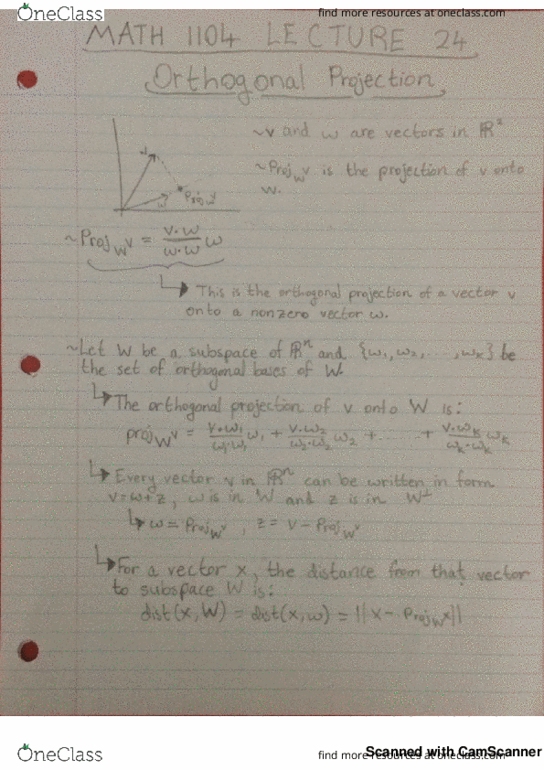 OneClass
find more resources at oneclass.com
MATH 1104 LECTURE 24
Orthogonal Projection
~v and w are vectors in ℝ²
~Proj_w v is the projection of v onto
w.
v
w
Proj_w v
~Proj_w v = v·w/w·w w
↳ This is the orthogonal projection of a vector v
onto a nonzero vector w.
~Let W be a subspace of ℝⁿ and {w₁,w₂,. . . ,wₖ} be
the set of orthogonal bases of W.
↳ The orthogonal projection of v onto W is:
proj_W v = v·w₁/w₁·w₁ w₁ + v·w₂/w₂·w₂ w₂ + . . . . . + v·wₖ/wₖ·wₖ wₖ
↳ Every vector v in ℝⁿ can be written in form
v=w+z, w is in W and z is in W⊥
↳ w = Proj_W v , z = v - Proj_W v
↳ For a vector x, the distance from that vector
to subspace W is:
dist(x,W) = dist(x,w) = ||x - Proj_W x||
OneClass
find more resources at oneclass.com
Scanned with CamScanner